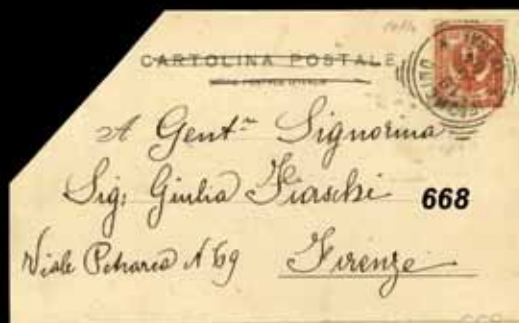 CARTOLINA POSTALE
A Gent.ma Signorina
Sig: Giulia Fiaschi
668
Viale Petrarca N 69
Firenze